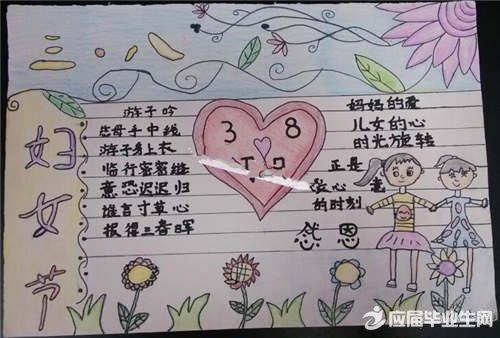 三·八
妇女节
游子吟
慈母手中线
游子身上衣
临行密密缝
意恐迟迟归
谁言寸草心
报得三春晖
3 8
妈妈的爱
儿女的心
时光旋转
正是
爱心 意
的时刻
感恩
应届毕业生网